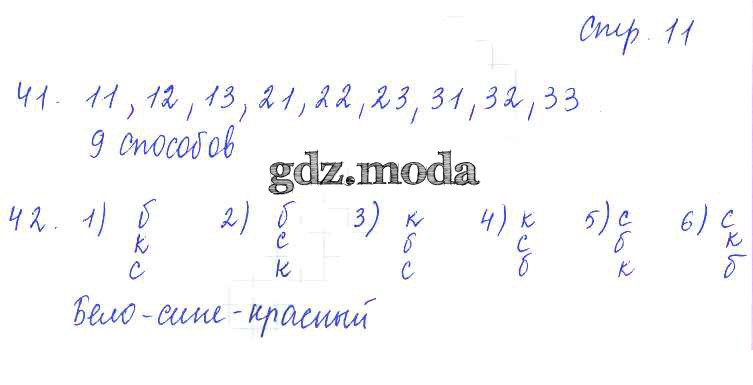 Стр. 11
41. 11, 12, 13, 21, 22, 23, 31, 32, 33.
9 способов
gdz.moda
42. 1) б 2) б 3) к 4) к 5) с 6) с
к с б с б к
с к с б к б
Бело-сине-красный